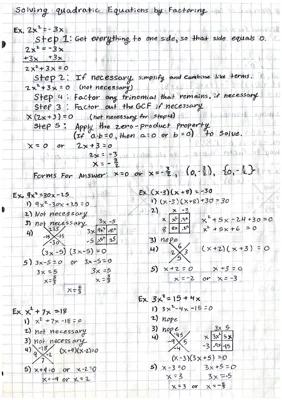 Solving quadratic Equations by Factoring
Ex. 2x² = -3x
Step 1: Get everything to one side, so that side equals 0.
2x² = -3x
+3x +3x
2x² + 3x = 0
Step 2: If necessary, simplify and combine like terms.
2x² + 3x = 0 (not necessary)
Step 4: Factor any trinomial that remains, if necessary
Step 3: Factor out the GCF if necessary
x(2x+3) = 0 (not necessary for Step 4)
Step 5: Apply the zero-product property
(If a·b = 0, then a = 0 or b = 0) to solve.
x = 0 or 2x + 3 = 0
2x = -3
x = -3/2
Forms For Answer: x = 0 or x = -3/2,
Ex. 9x² = 30x - 25
1) 9x² - 30x + 25 = 0
2) Not necessary
3) Not necessary
4)
(3x-5)(3x-5) = 0
5) 3x - 5 = 0 or 3x - 5 = 0
3x = 5 3x = 5
x = 5/3 x = 5/3
Ex. (x-3)(x+8) = -30
1) (x-3)(x+8) + 30 = 0
2) x² + 5x - 24 + 30 = 0
x² + 5x + 6 = 0
3) nope
4) (x+2)(x+3) = 0
5) x + 2 = 0 x + 3 = 0
x = -2 or x = -3
Ex. x² + 7x = 18
1) x² + 7x - 18 = 0
2) Not necessary
3) Not necessary
4) (x+9)(x-2) = 0
5) x + 9 = 0 or x - 2 = 0
x = -9 or x = 2
Ex. 3x² = 15 + 4x
1) 3x² - 4x - 15 = 0
2) nope
3) nope
4)
(x-3)(3x+5) = 0
5) x - 3 = 0 3x + 5 = 0
x = 3 3x = -5
x = 3 or x = -5/3